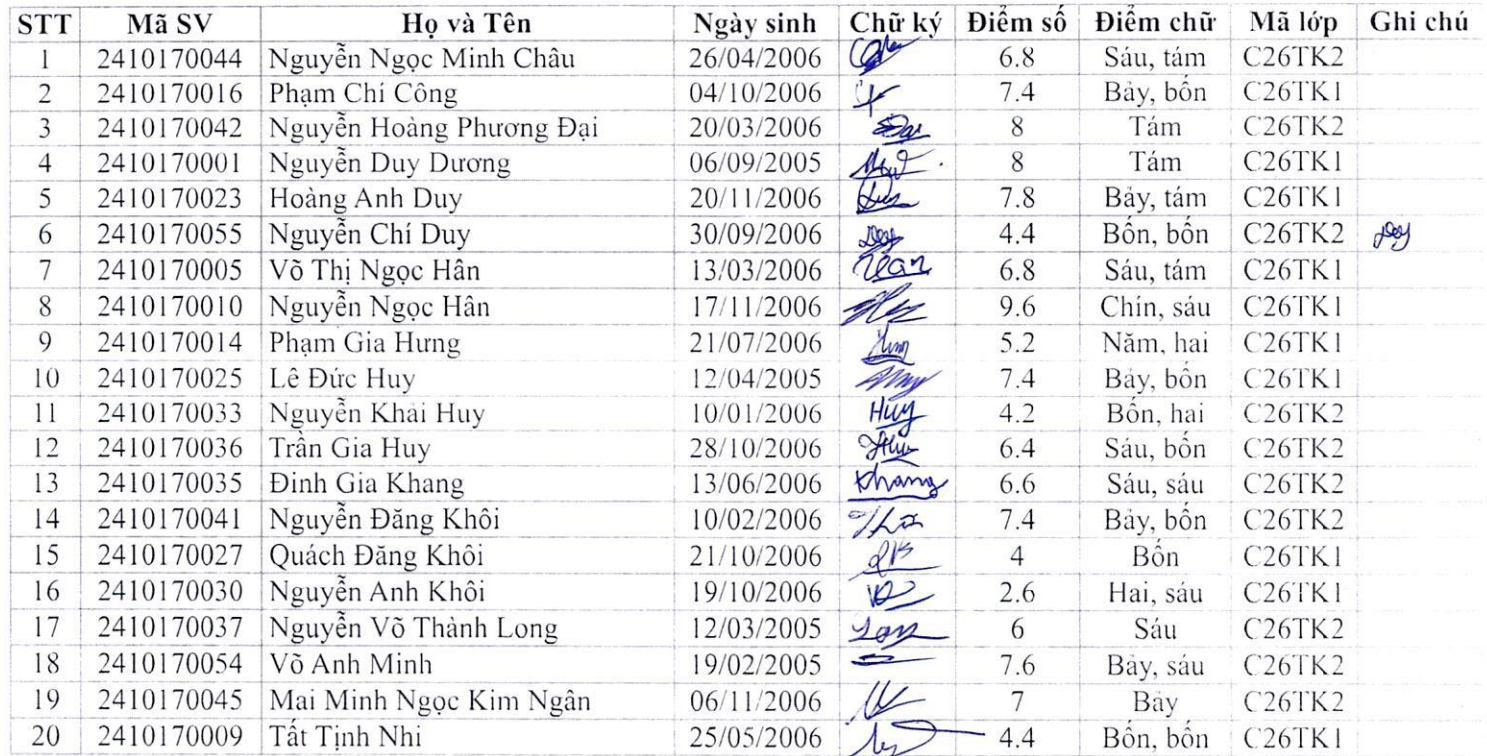 STT Mã SV Họ và Tên Ngày sinh Chữ ký Điểm số Điểm chữ Mã lớp Ghi chú
1 2410170044 Nguyễn Ngọc Minh Châu 26/04/2006 6.8 Sáu, tám C26TK2
2 2410170016 Phạm Chí Công 04/10/2006 7.4 Bảy, bốn C26TK1
3 2410170042 Nguyễn Hoàng Phương Đại 20/03/2006 Đại 8 Tám C26TK2
4 2410170001 Nguyễn Duy Dương 06/09/2005 8 Tám C26TK1
5 2410170023 Hoàng Anh Duy 20/11/2006 7.8 Bảy, tám C26TK1
6 2410170055 Nguyễn Chí Duy 30/09/2006 Duy 4.4 Bốn, bốn C26TK2 Duy
7 2410170005 Võ Thị Ngọc Hân 13/03/2006 Hân 6.8 Sáu, tám C26TK1
8 2410170010 Nguyễn Ngọc Hân 17/11/2006 9.6 Chín, sáu C26TK1
9 2410170014 Phạm Gia Hưng 21/07/2006 5.2 Năm, hai C26TK1
10 2410170025 Lê Đức Huy 12/04/2005 7.4 Bảy, bốn C26TK1
11 2410170033 Nguyễn Khải Huy 10/01/2006 Huy 4.2 Bốn, hai C26TK2
12 2410170036 Trần Gia Huy 28/10/2006 Huy 6.4 Sáu, bốn C26TK2
13 2410170035 Đinh Gia Khang 13/06/2006 Khang 6.6 Sáu, sáu C26TK2
14 2410170041 Nguyễn Đăng Khôi 10/02/2006 7.4 Bảy, bốn C26TK2
15 2410170027 Quách Đăng Khôi 21/10/2006 4 Bốn C26TK1
16 2410170030 Nguyễn Anh Khôi 19/10/2006 2.6 Hai, sáu C26TK1
17 2410170037 Nguyễn Võ Thành Long 12/03/2005 6 Sáu C26TK2
18 2410170054 Võ Anh Minh 19/02/2005 7.6 Bảy, sáu C26TK2
19 2410170045 Mai Minh Ngọc Kim Ngân 06/11/2006 7 Bảy C26TK2
20 2410170009 Tất Tịnh Nhi 25/05/2006 4.4 Bốn, bốn C26TK1